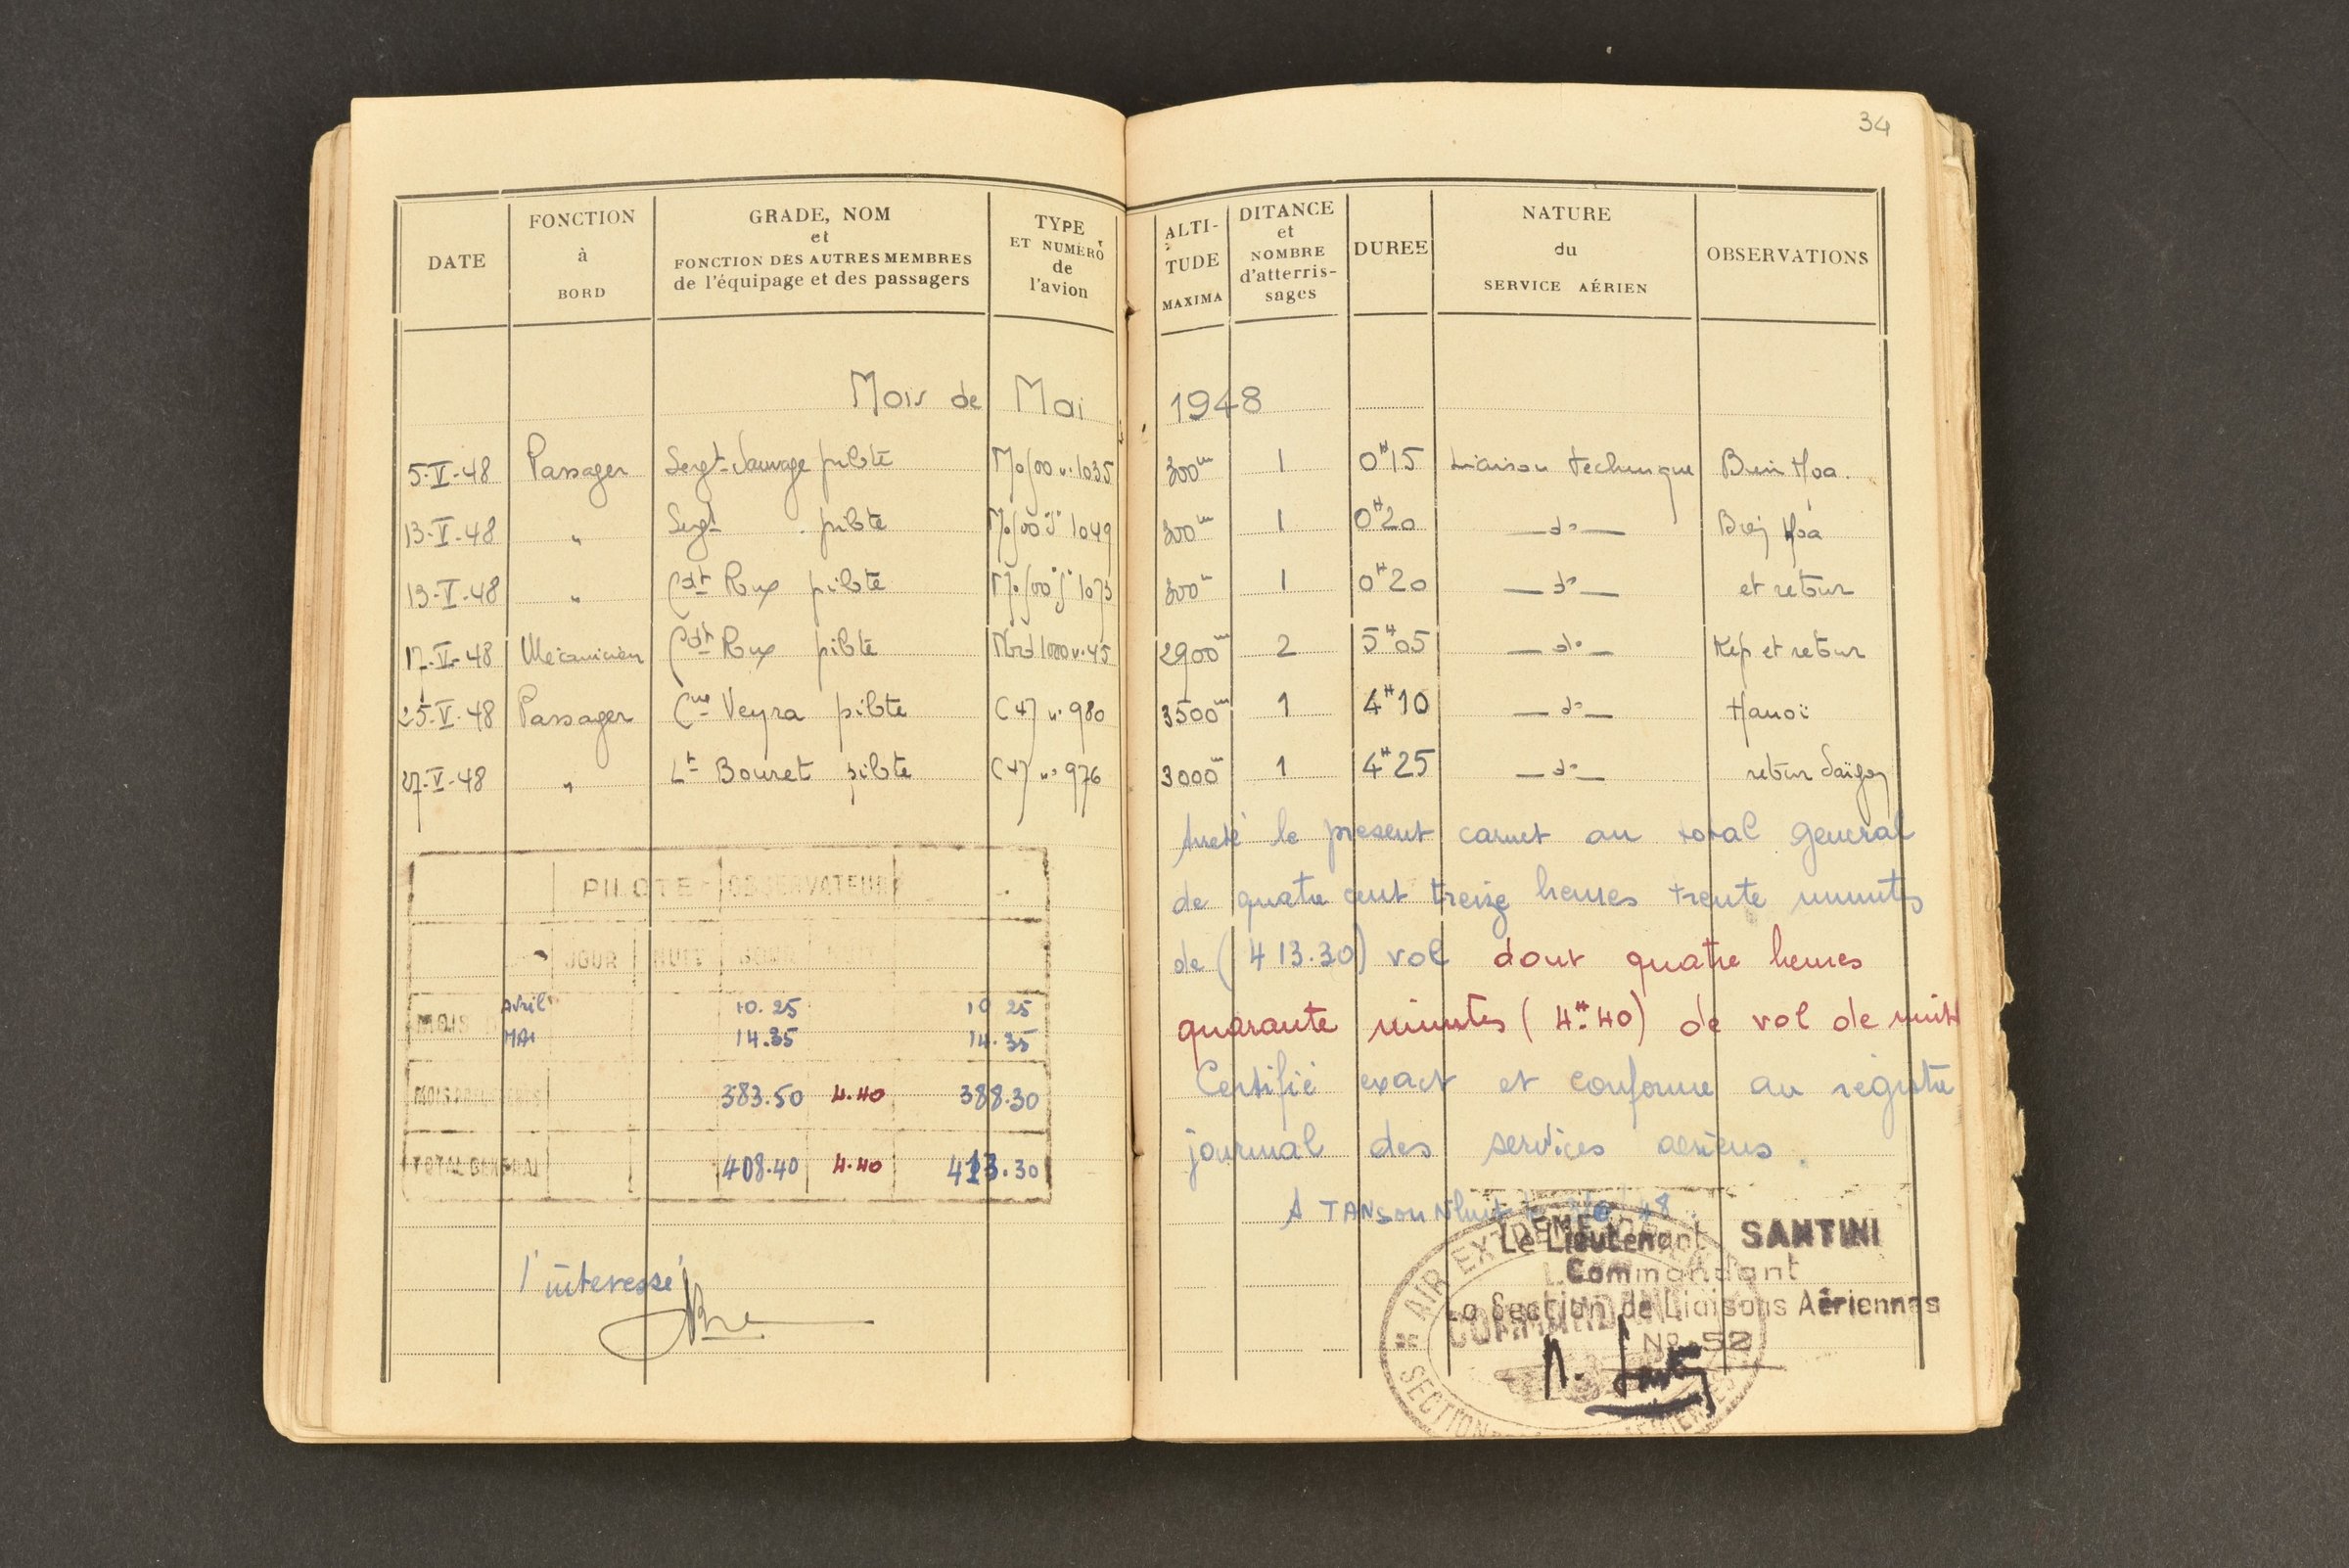 34
DATE
FONCTION
à
BORD
GRADE, NOM
et
FONCTION DES AUTRES MEMBRES
de l'équipage et des passagers
TYPE
ET NUMERO
de
l'avion
ALTI-
TUDE
MAXIMA
DITANCE
et
NOMBRE
d'atterris-
sages
DUREE
NATURE
du
SERVICE AÉRIEN
OBSERVATIONS
Mois de Mai 1948
5-V-48 Passager Sergt Sauvage pilote 1035 300m 1 0H15 Liaison technique Bien Hoa.
13-V-48 " Sergt pilote 1049 300m 1 0H20 —d°— Bien Hoa
13-V-48 " Cdt Roux pilote 1073 300m 1 0H20 —d°— et retour
17-V-48 Mécanicien Cdt Roux pilote Nord 1000 n° 45 2900m 2 5H05 —d°— Kep et retour
25-V-48 Passager Cne Veyra pilote C47 n° 980 3500m 1 4H10 —d°— Hanoï
27-V-48 " Lt Bouret pilote C47 n° 976 3000m 1 4H25 —d°— retour Saïgon
PILOTE OBSERVATEUR
JOUR NUIT JOUR NUIT
MOIS Avril 10.25 10 25
MAI 14.35 14.35
383.50 4.40 388.30
TOTAL GENERAL 408.40 4.40 413.30
l'interessé
Arreté le present carnet au total general
de quatre cent treize heures trente minutes
de (413.30) vol dont quatre heures
quarante minutes (4H40) de vol de nuit
Certifié exact et conforme au registre
journal des services aeriens.
A TANSON Nhut le 48
Le Lieutenant SANTINI
Commandant
la Section de Liaisons Aériennes
N° 52
AIR EXTREME
COMMANDANT
SECTION